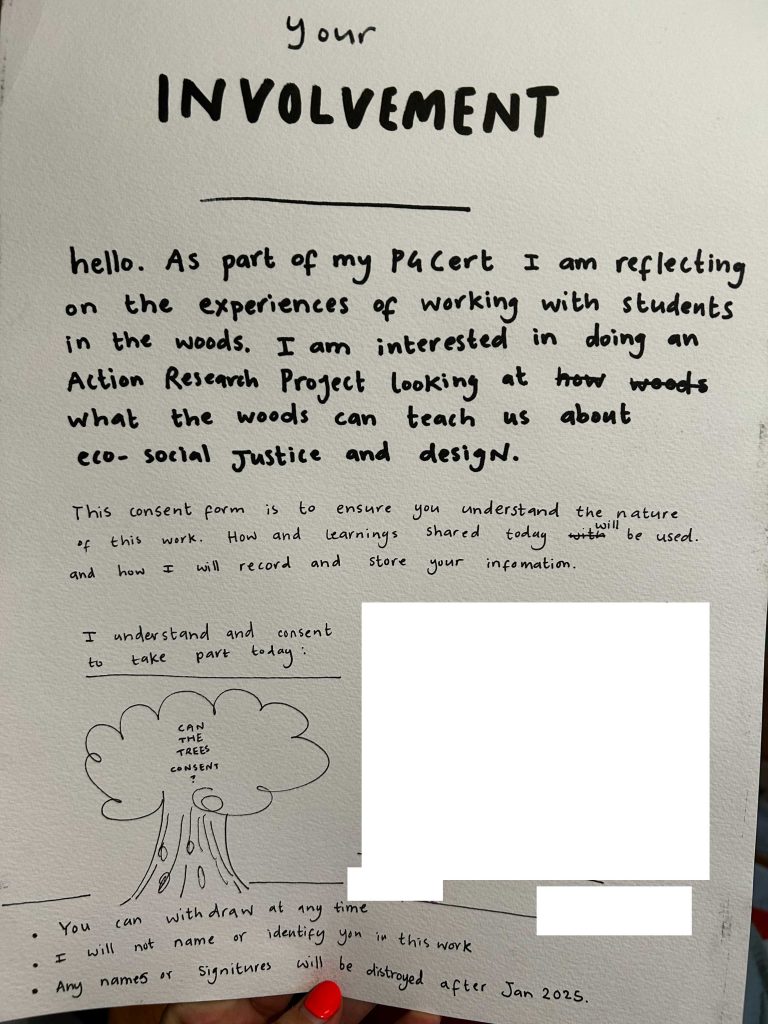 your
INVOLVEMENT
hello. As part of my PGCert I am reflecting
on the experiences of working with students
in the woods. I am interested in doing an
Action Research Project looking at how woods
what the woods can teach us about
eco- social Justice and design.
This consent form is to ensure you understand the nature
of this work. How and learnings shared today with will be used.
and how I will record and store your infomation.
I understand and consent
to take part today:
CAN
THE
TREES
CONSENT
?
• You can withdraw at any time
• I will not name or identify you in this work
• Any names or Signitures will be distroyed after Jan 2025.